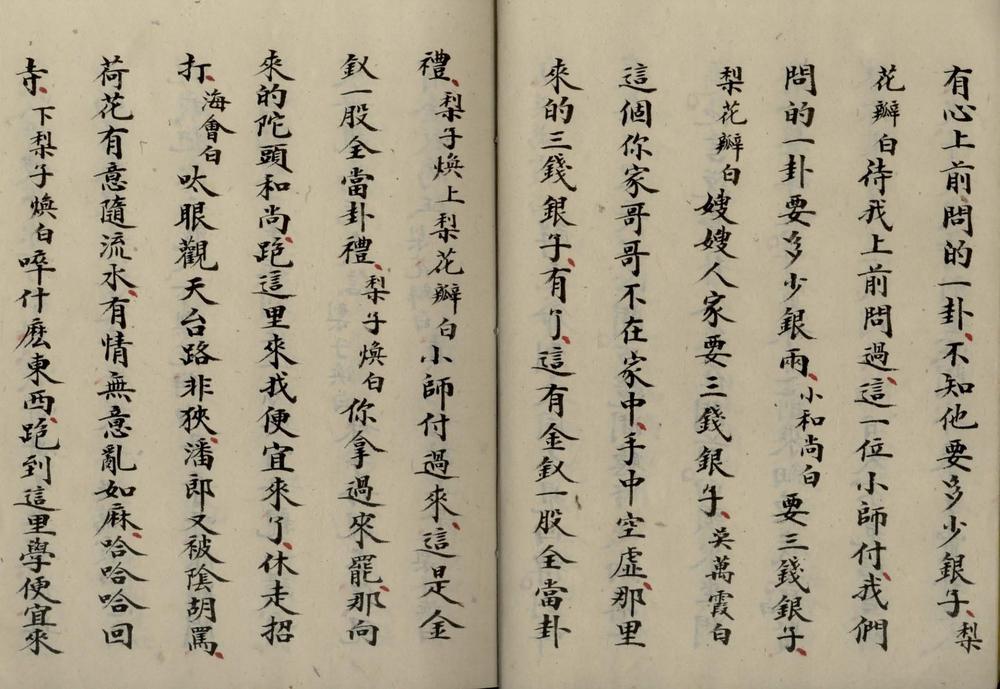 有心上前問的一卦、不知他要多少銀子、梨
花瓣白待我上前問過、這一位小師付、我們
問的一卦要多少銀兩、小和尚白要三錢銀子、
梨花瓣白嫂嫂人家要三錢銀子、吳萬霞白
這個你家哥哥不在家中、手中空虛、那里
來的三錢銀子、有了、這有金釵一股全當卦
禮、梨子煥上梨花瓣白小師付過來、這是金
釵一股全當卦禮、梨子煥白你拿過來罷、那向
來的陀頭和尚、跑這里來我便宜來了、休走招
打、海會白呔眼觀天台路非狹、潘郎又被陰胡罵、
荷花有意隨流水、有情無意亂如麻、哈哈哈回
寺、下梨子煥白啐什麽東西、跑到這里學便宜來